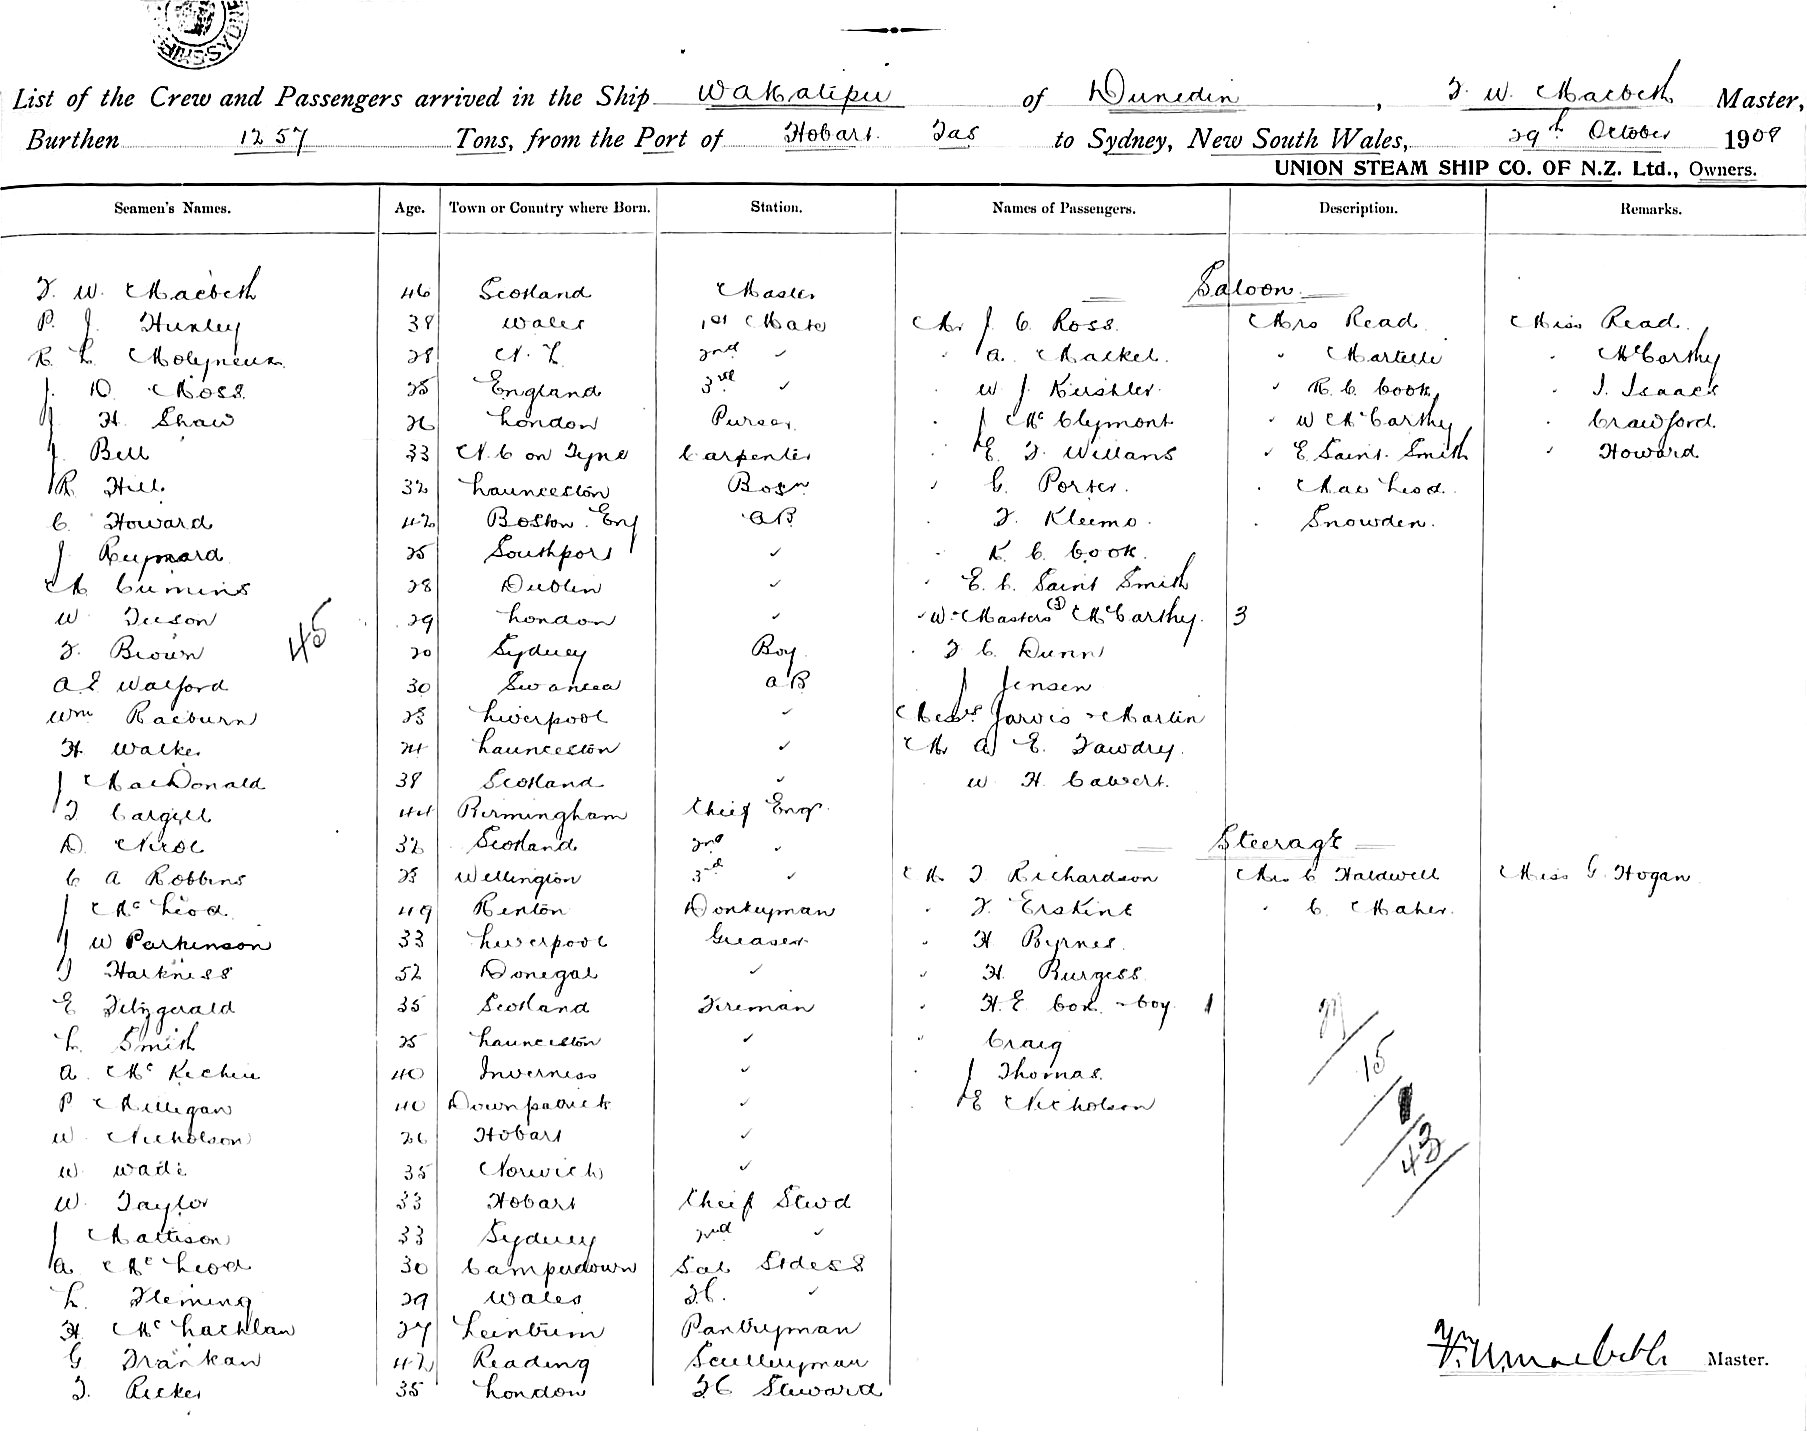 List of the Crew and Passengers arrived in the Ship Wakatipu of Dunedin, F. W. Macbeth Master,
Burthen 1257 Tons, from the Port of Hobart. Tas to Sydney, New South Wales, 29th October 1908
UNION STEAM SHIP CO. OF N.Z. Ltd., Owners.
Seamen's Names. Age. Town or Country where Born. Station. Names of Passengers. Description. Remarks.
Saloon
F. W. Macbeth 46 Scotland Master
P. J. Huxley 38 Wales 1st Mate Mr J. C. Ross. Mrs Read Miss Read
R L Molyneux 28 N. Z 2nd " " A. Mackel. " Martelli " McCarthy
J. D. Moss. 25 England 3rd " " W J. " R. C. Cook " I. Isaacs
J H Shaw 26 London Purser " J McClymont " W McCarthy " Crawford.
J. Bell 33 N. C on Tyne Carpenter " E. F Willans " E Saint. Smith " Howard
R Hill 32 Launceston Bosn " C. Porter. " MacLeod.
C. Howard 42 Boston. Eng AB " F. Kleemo. " Snowden.
J. 25 Southport " " R. C. Cook.
M Cumins 28 Dublin " " E. C. Saint Smith
W Tuson 29 London " " W. Masters (3) McCarthy. 3
45
F. Brown 20 Sydney Boy " F C. Dunn
A E Walford 30 Swansea AB J Jensen
Wm Raeburn 23 Liverpool " Messrs Jarvis & Martin
H Walker 24 Launceston " Mr A E. Tawdry.
J MacDonald 38 Scotland " W H. Calvert.
J Cargill 44 Birmingham Chief Engr.
Steerage
D. Nicol 32 Scotland 2nd "
C A Robbins 23 Wellington 3rd " Mr J Richardson Mrs C Haldwell Miss G. Hogan
J McLeod 49 Renton Donkeyman " F. Erskine " C. Maher.
J W Parkinson 33 Liverpool Greaser " H Byrnes.
J Harkness 52 Donegal " " H. Burgess
E Fitzgerald 35 Scotland Fireman " H. E Cox. & boy 1
L. Smith 25 Launceston " " Craig
A. McKechie 40 Inverness " J Thomas.
P Milligan 40 Downpatrick " E Nicholson
27
15
1
43
W. Nicholson 26 Hobart "
W Wade 35 Norwich "
W. Taylor 33 Hobart Chief Stwd
J Mattison 33 Sydney 2nd "
A McLeod 30 Camperdown Sal Stdess
L. Fleming 29 Wales F.C. "
H. McLachlan 27 Pantryman
G Frankan 42 Reading Scullryman
F. Ricker 35 London FC Steward
F. W. Macbeth Master.